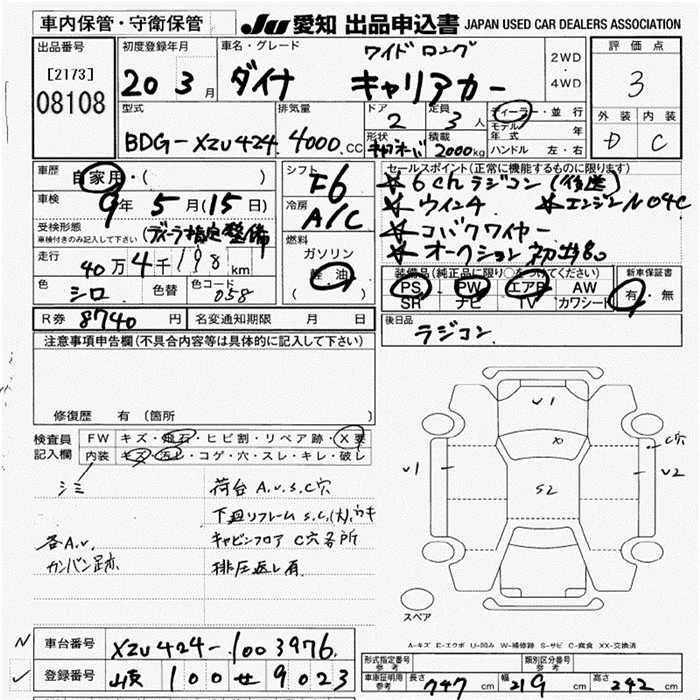 車内保管・守衛保管
JU 愛知 出品申込書 JAPAN USED CAR DEALERS ASSOCIATION
出品番号
[2173]
08108
初度登録年月
20 3月
車名・グレード
ワイドロング
ダイナ キャリアカー
2WD
・
4WD
評価点
3
外装 内装
D C
型式
BDG-XZU424
排気量
4000.cc
ドア
2
定員
3人
形状
積載
2000kg
ディーラー・並行
モデル年式 年
ハンドル 左・右
車歴
自家用・( )
車検
9年5月(15日)
受検形態
車検付きのみ記入して下さい
(ディーラ指定整備
走行
40万4千198km
色
シロ
色替
色コード
058
シフト
F6
冷房
A/C
燃料
ガソリン
軽油
( )
セールスポイント(正常に機能するものに限ります)
☆ 6chラジコン(後送)
☆ ウインチ ☆エンジンO4C
☆ コバクワイヤー
☆ オークション初出品
装備品(純正品に限り○をつけてください)
PS PW エアB AW
SR ナビ TV カワシート
新車保証書
有・無
R券 8740円
名変通知期限 月 日
後日品
ラジコン
注意事項申告欄(不具合内容等は具体的に記入して下さい)
修復歴 有 (箇所
検査員記入欄
FW キズ・飛石・ヒビ割・リペア跡・X要
内装 キズ・汚レ・コゲ・穴・スレ・キレ・破レ
シミ
荷台 A.U.S.C穴
下廻リフレーム S.C.(大)ウキ
各A.U.
キャビンフロア C穴各所
カンバン跡
排圧返し有
U1
X
U1
S2
C穴
U2
スペア
A-キズ E-エクボ U-凹み W-補修跡 S-サビ C-腐食 XX-交換済
車台番号 XZU424-1003976
登録番号 100せ9023
形式指定番号
参考
類別区分番号
参考
車庫証明用
参考
長さ 747cm 幅 219cm 高さ 242cm